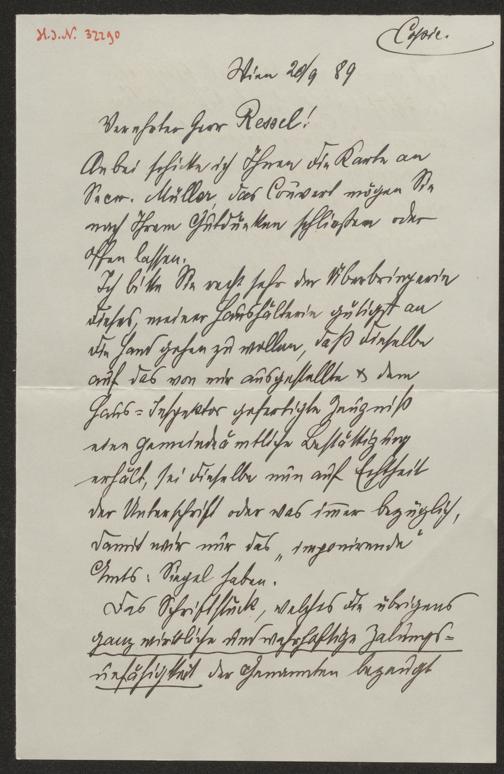 H.I.N. 32290
Copie.
Wien 28/9 89
Verehrter Herr Ressel!
Anbei schicke ich Ihnen die Karte an
Secr. Müller, das Couvert mögen Sie
nach Ihrem Gutdünken schließen oder
offen lassen.
Ich bitte Sie recht sehr der Überbringerin
dieses, meiner Haushälterin gütigst an
die Hand gehen zu wollen, daß dieselbe
auf das von mir ausgestellte & dem
Haus=Inspektor gefertigte Zeugniß
eine gemeindeämtliche Bestättigung
erhält, sei dieselbe nun auf Echtheit
der Unterschrift oder was immer bezüglich,
damit wir nur das „imponirende"
Amts=Siegel haben.
Das Schriftstück, welches die übrigens
ganz wirkliche und wahrhaftige Zalungs=
unfähigkeit der Genannten bezeugt